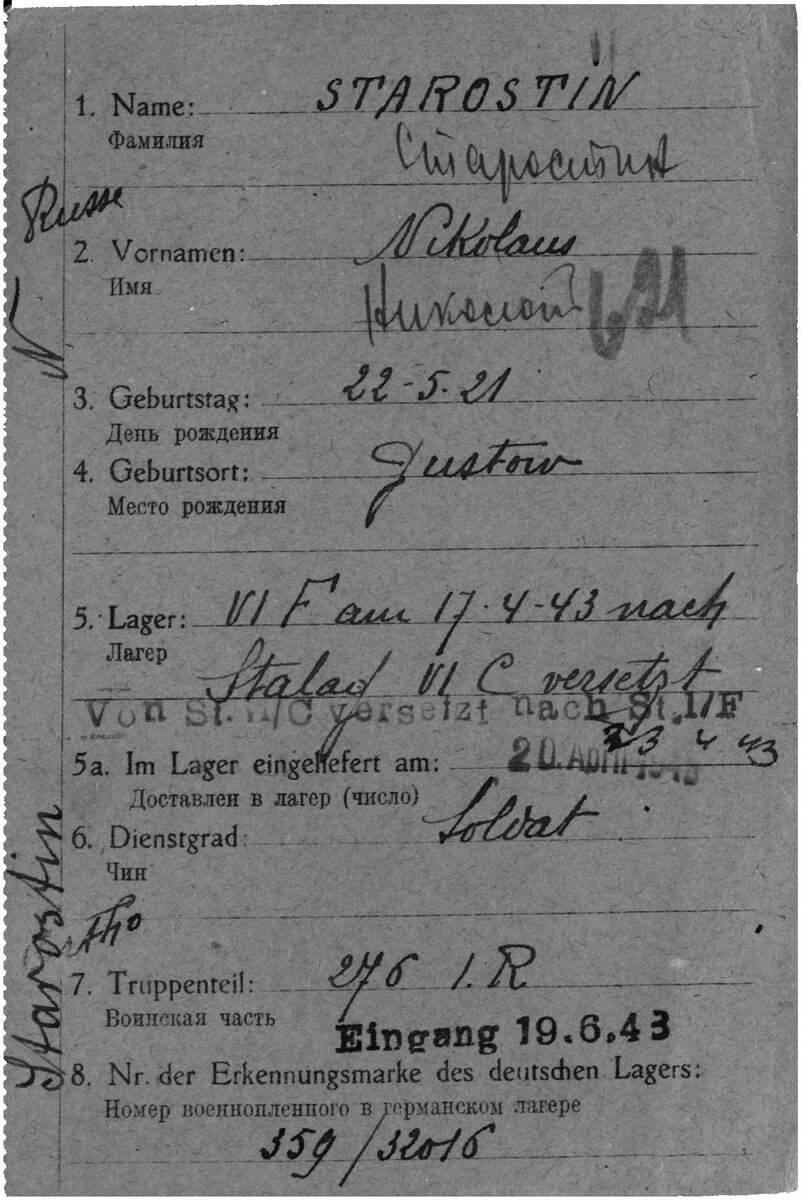 1. Name: STAROSTIN
Фамилия Старостин
Russe
2. Vornamen: Nikolaus
Имя Николай
N
3. Geburtstag: 22-5.21
День рождения
4. Geburtsort:
Место рождения
5. Lager: VI F am 17.4-43 nach
Лагер
Stalag VI C versetzt
Von St. VI/C versetzt nach St.
5a. Im Lager eingeliefert am: 20. April 1943
23 4 43
Доставлен в лагер (число)
6. Dienstgrad: Soldat
Чин
Starostin
7. Truppenteil: 276 I.R
Воинская часть
Eingang 19.6.43
8. Nr. der Erkennungsmarke des deutschen Lagers:
Номер военнопленного в германском лагере
359/32016